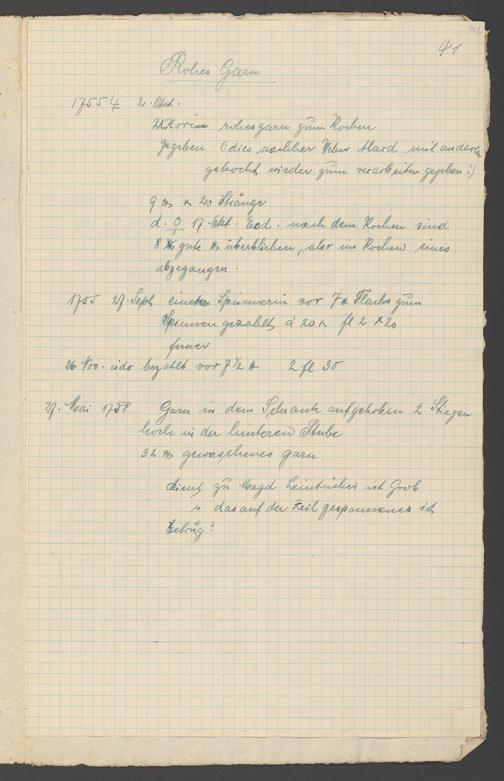 41
Rohes Garn
1755 4 2. Okt.
rohesgarn zum Kochen
gegeben (: dies nachher Weber Hard mit anderm
gekocht wieder zum verarbeiten gegeben :)
9 20 Stränge
d. 17. Okt. Eod. nach dem Kochen sind
8 gute überblieben, also im Kochen eines
abgegangen.
1755 27. Sept. einer Spinnerin vor 7 Flachs zum
Spinnen gezahlt à 20 x fl 2 x 20
ferner
26 Nov. ido bezahlt vor 7 1/2 2 fl 30
27. Mai 1758 Garn in dem Schrank aufgehoben 2 Stegen
hoch in der hinteren Stube
32 gewaschenes garn
dient zu Magd Leintücher ist Grob
u das auf der Zeil gesponnenes ist